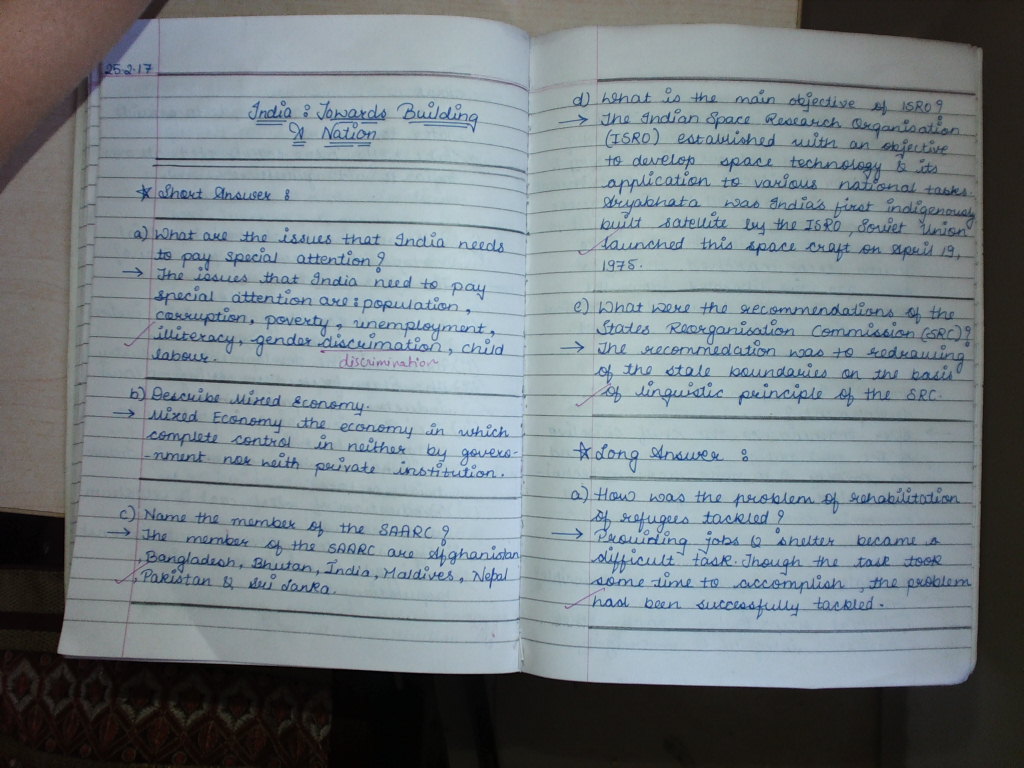 25.2.17
India : Towards Building
A Nation
* Short Answer :
a) What are the issues that India needs
to pay special attention ?
→ The issues that India need to pay
special attention are : population ,
corruption, poverty , unemployment,
illiteracy, gender discrimation , child
discrimination
labour.
b) Describe Mixed Economy.
→ Mixed Economy the economy in which
complete control in neither by govern-
-nment nor neith private institution.
c) Name the member of the SAARC ?
→ The member of the SAARC are Afghanistan
, Bangladesh, Bhutan, India, Maldives, Nepal
, Pakistan & Sri Lanka.
d) What is the main objective of ISRO ?
→ The Indian Space Research Organisation
(ISRO) established with an objective
to develop space technology & its
application to various national tasks.
Aryabhata was India's first indigenously
built satellite by the ISRO , Soviet Union
launched this space craft on April 19,
1975.
e) What were the recommendations of the
States Reorganisation Commission (SRC) ?
→ The recommedation was to redrawing
of the state boundaries on the basis
of linguistic principle of the SRC.
* Long Answer :
a) How was the problem of rehabilitation
of refugees tackled ?
→ Providing jobs & shelter became a
difficult task. Though the task took
some time to accomplish , the problem
had been successfully tackled.